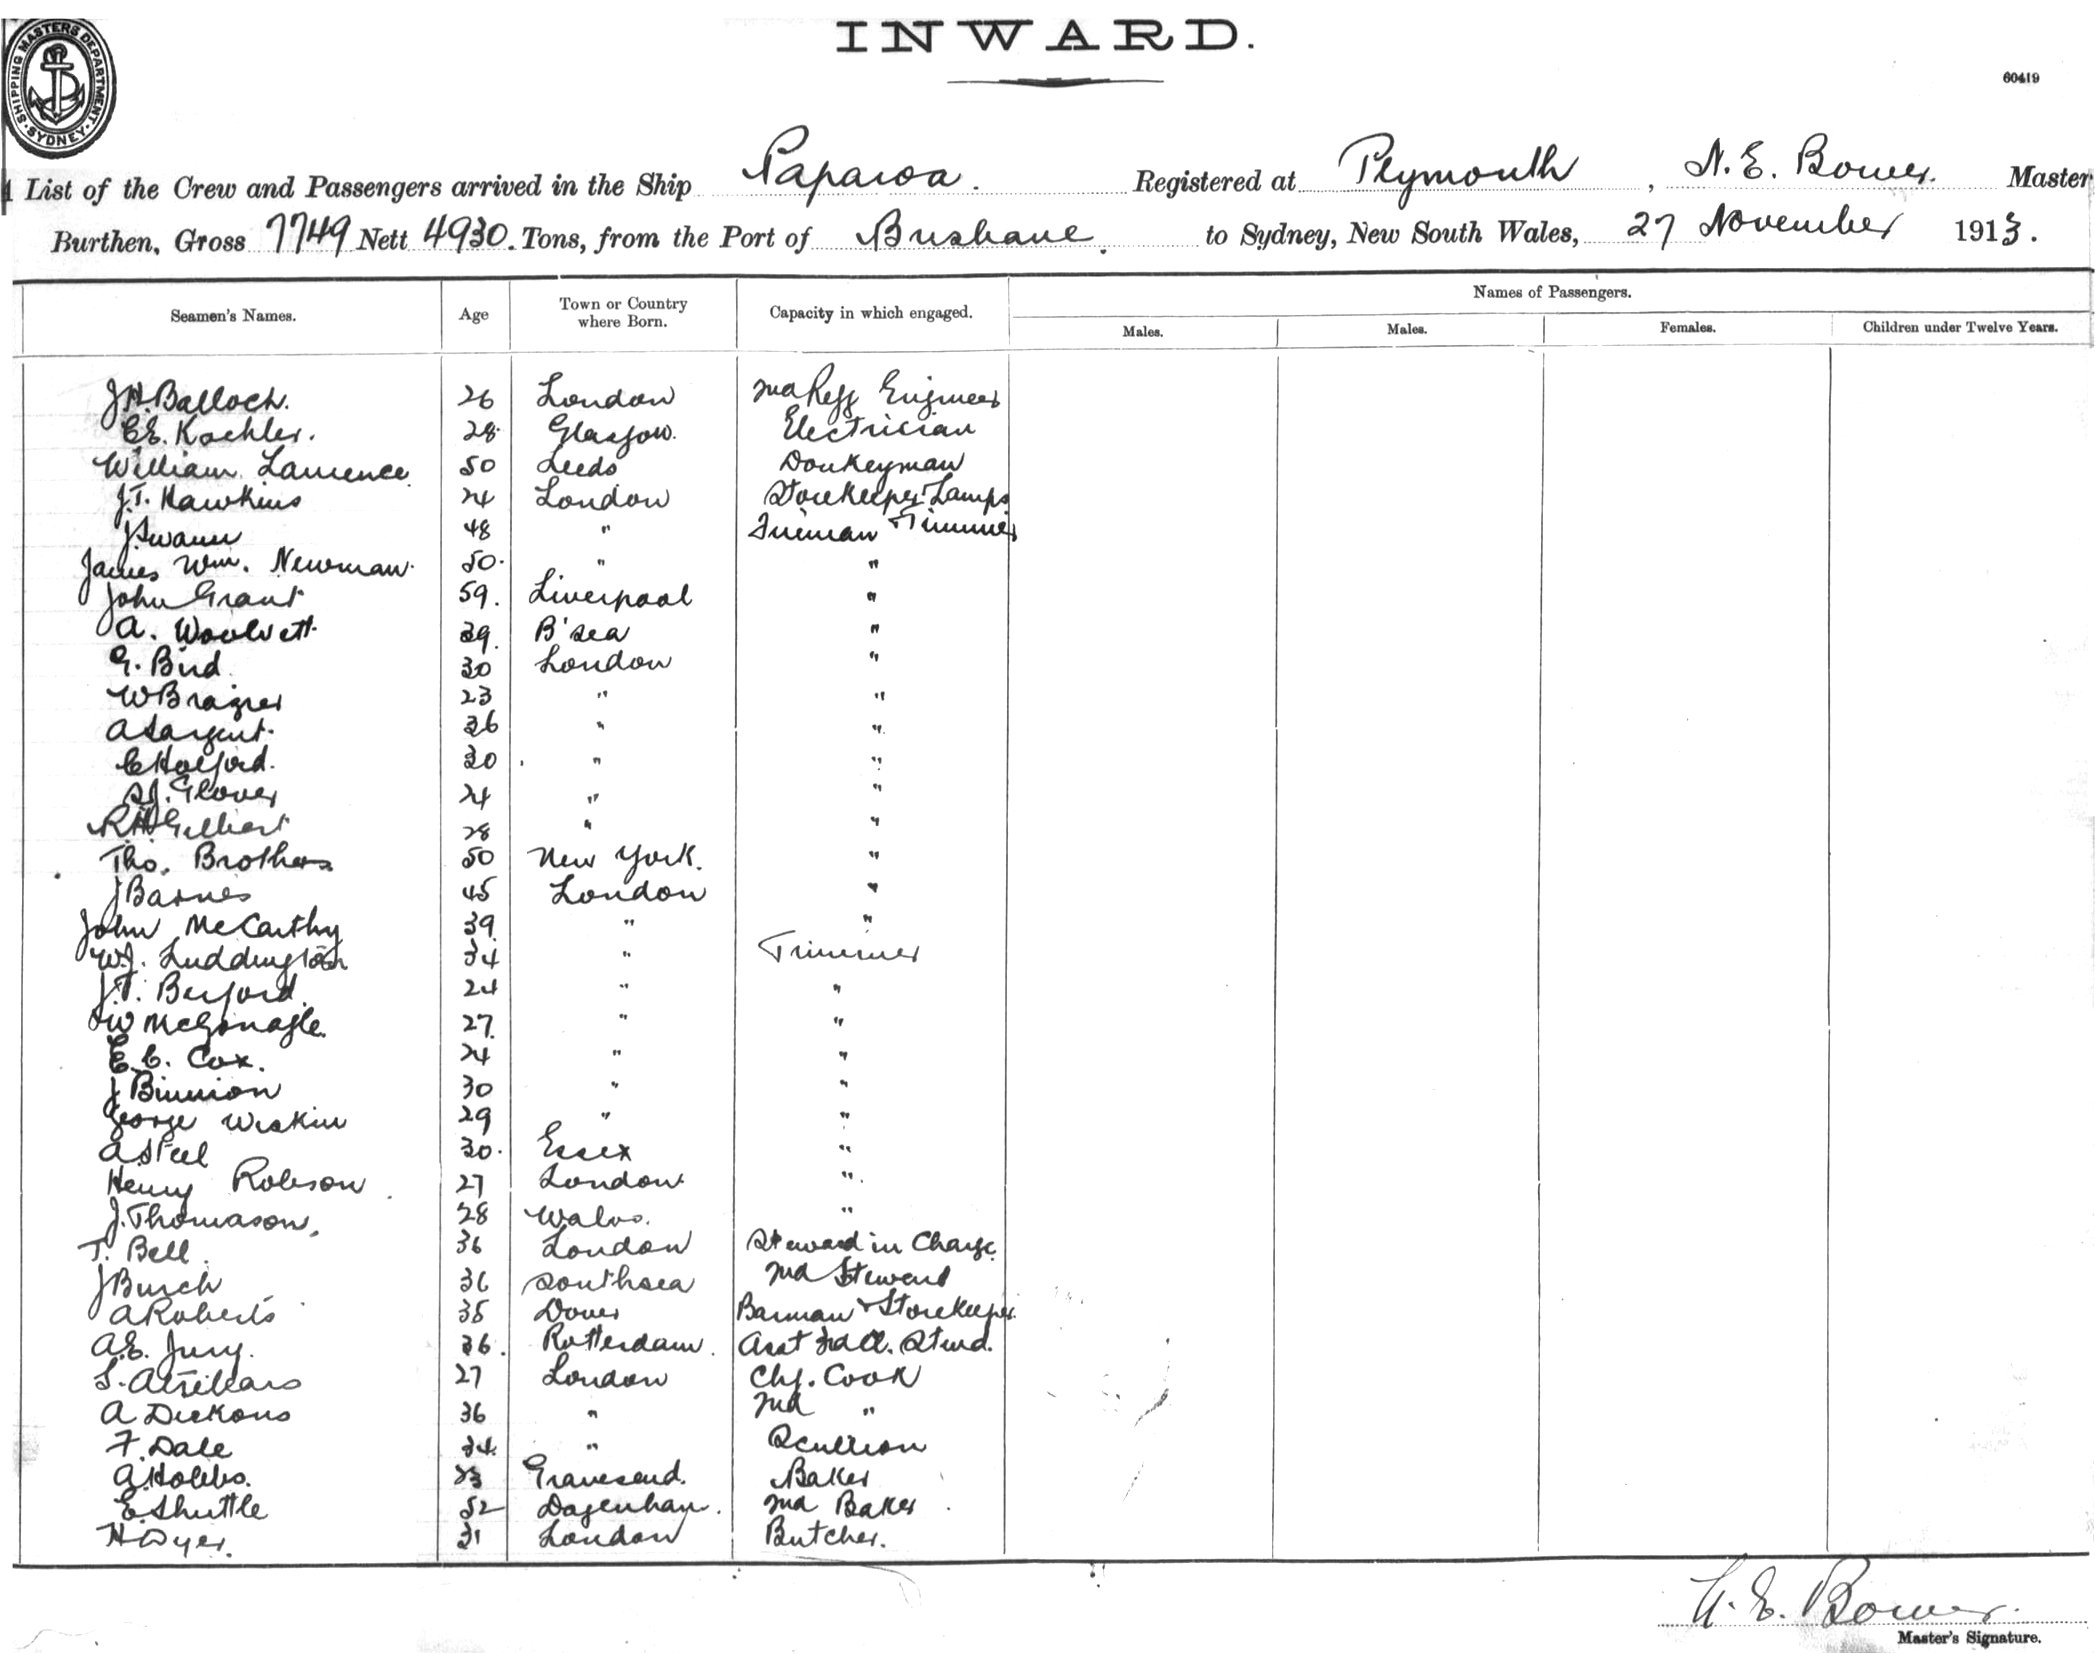 INWARD.
SHIPPING MASTERS DEPARTMENT · SYDNEY ·
60419
List of the Crew and Passengers arrived in the Ship Paparoa. Registered at Plymouth, N. E. Bower. Master
Burthen, Gross 7749 Nett 4930. Tons, from the Port of Brisbane. to Sydney, New South Wales, 27 November 1913.
Seamen's Names. Age Town or Country where Born. Capacity in which engaged. Names of Passengers.
Males. Males. Females. Children under Twelve Years.
J.H. Balloch. 26 London 2nd Refg Engineer
C.E. Kochler. 28 Glasgow. Electrician
William Lawrence 50 Leeds Donkeyman
J.T. Hawkins 24 London Storekeeper & Lamps
J Swann 48 " Fireman & Trimmer
James Wm. Newman 50 " "
John Grant 59. Liverpool "
A. Woolvett 39. B'sea "
G. Bird 30 London "
W Brazier 23 " "
A Sargent. 36 " "
C Holford. 30 " "
S.J. Glover 24 " "
R H Gilbert 28 " "
Tho. Brothers 50 New York. "
J Barnes 45 London "
John McCarthy 39 " "
W.J. Luddington 34 " Trimmer
J.T. Berford 24 " "
W McGonagle. 27. " "
E.C. Cox. 24 " "
J Binnion 30 " "
George Wiskin 29 " "
A Steel 30. Essex "
Henry Robson 27 London "
J. Thomason. 28 Wales. "
T. Bell. 36 London Steward in Charge
J Burch 36 Southsea 2nd Steward
A Roberts 35 Dover Barman & Storekeeper
A.E. Jury. 36. Rotterdam. Asst 3d Cl. Stwd.
27 London Chf. Cook
A Dickons 36 " 2nd "
F. Dale 34 " Scullion
A. Hobbs. 23 Gravesend. Baker
E. Shuttle 52 Dagenham. 2nd Baker
H Dyer. 31 London Butcher.
N. E. Bower.
Master's Signature.